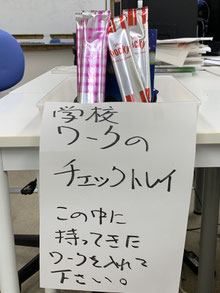 学校
ワークの
チェックトレイ
この中に
持ってきた
ワークを入れて
下さい。